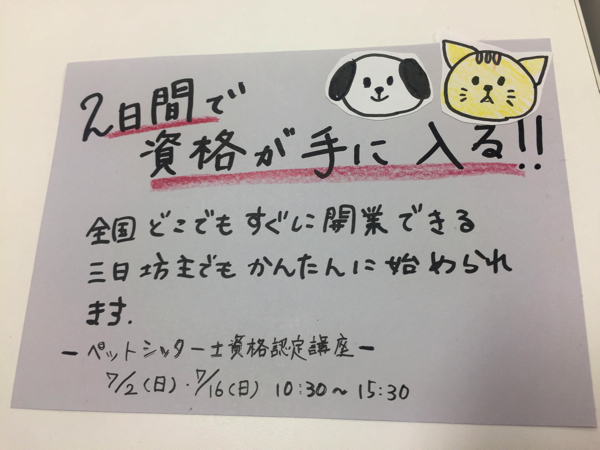 2日間で
資格が手に入る!!
全国どこでもすぐに開業できる
三日坊主でもかんたんに始められ
ます.
ーペットシッター士資格認定講座ー
7/2(日)・7/16(日) 10:30〜15:30